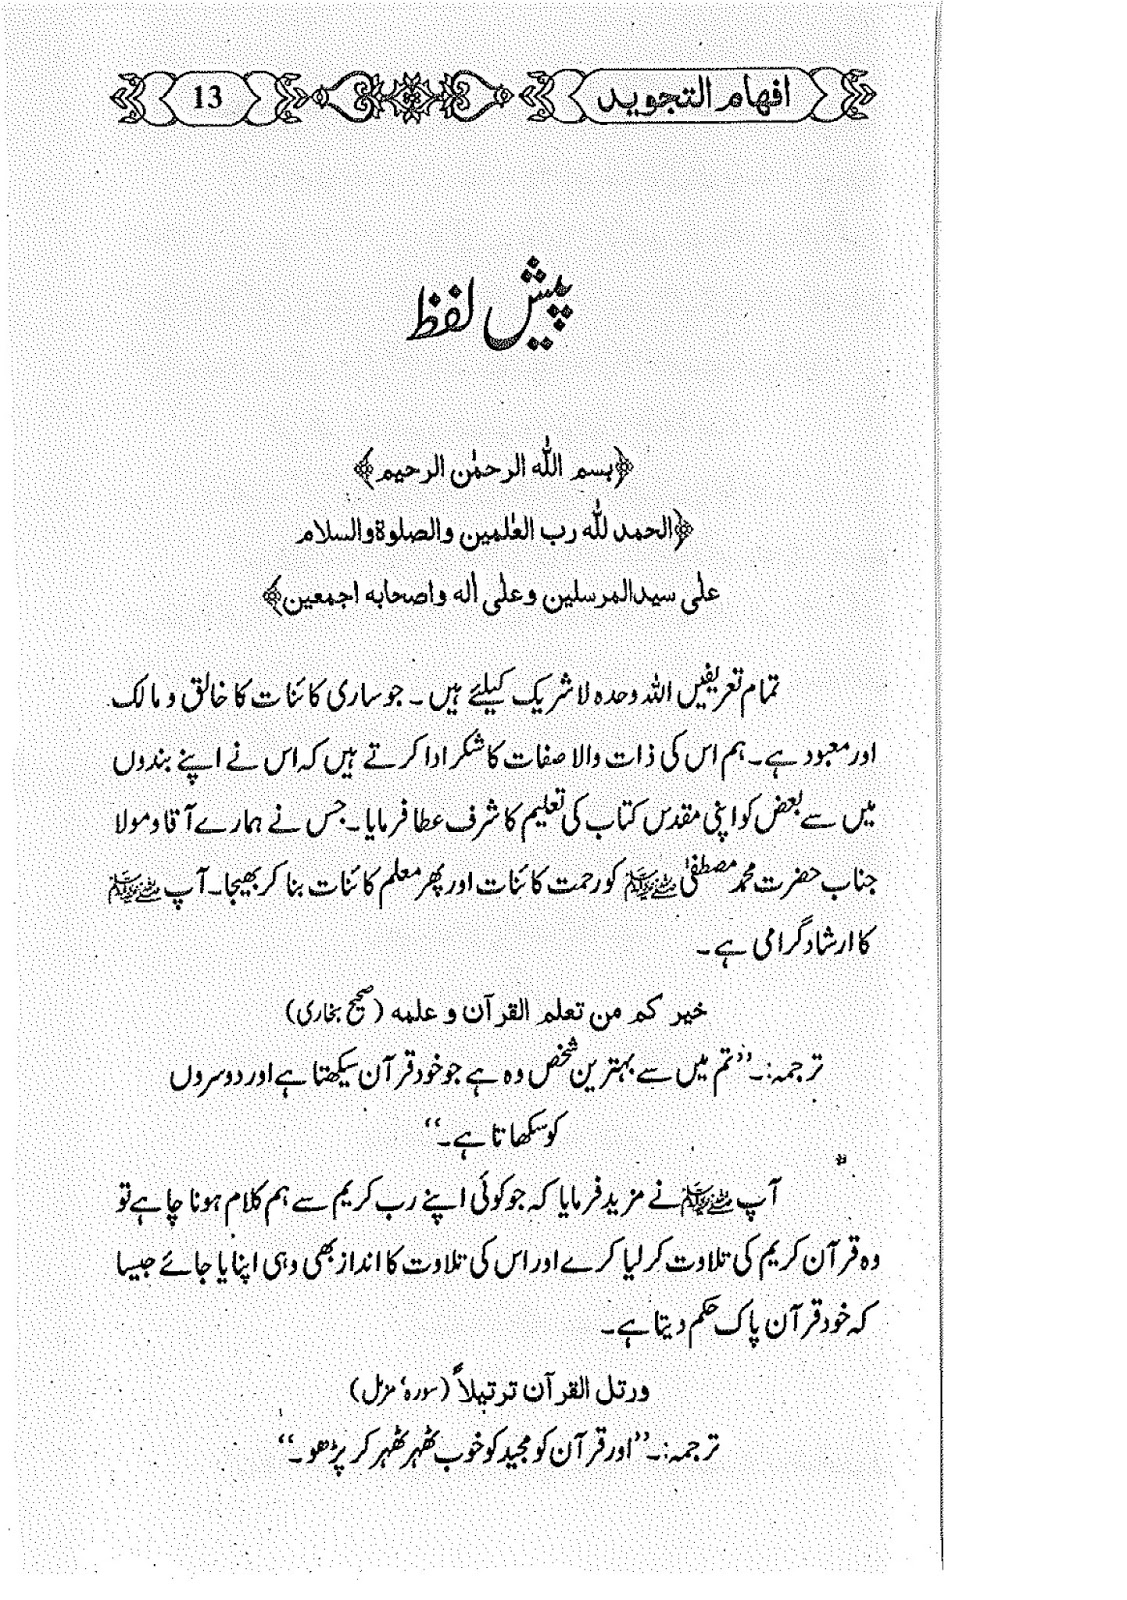 افهام التجويد
13
پیش لفظ
﴿بسم الله الرحمٰن الرحيم﴾
﴿الحمد لله رب العٰلمين والصلوة والسلام
على سيد المرسلين وعلى اله واصحابه اجمعين﴾
تمام تعریفیں اللہ وحدہ لا شریک کیلئے ہیں ۔ جو ساری کائنات کا خالق و مالک
اور معبود ہے۔ ہم اس کی ذات والا صفات کا شکر ادا کرتے ہیں کہ اس نے اپنے بندوں
میں سے بعض کو اپنی مقدس کتاب کی تعلیم کا شرف عطا فرمایا۔ جس نے ہمارے آقا و مولا
جناب حضرت محمد مصطفیٰ ﷺ کو رحمت کائنات اور پھر معلم کائنات بنا کر بھیجا۔ آپ ﷺ
کا ارشاد گرامی ہے ۔
خير كم من تعلم القرآن و علمه (صحیح بخاری)
ترجمہ:۔ ’’تم میں سے بہترین شخص وہ ہے جو خود قرآن سیکھتا ہے اور دوسروں
کو سکھاتا ہے۔‘‘
آپ ﷺ نے مزید فرمایا کہ جو کوئی اپنے رب کریم سے ہم کلام ہونا چاہے تو
وہ قرآن کریم کی تلاوت کر لیا کرے اور اس کی تلاوت کا انداز بھی وہی اپنایا جائے جیسا
کہ خود قرآن پاک حکم دیتا ہے۔
ورتل القرآن ترتيلاً (سورہ مزمل)
ترجمہ:۔ ’’اور قرآن کو مجید کو خوب ٹھہر ٹھہر کر پڑھو۔‘‘